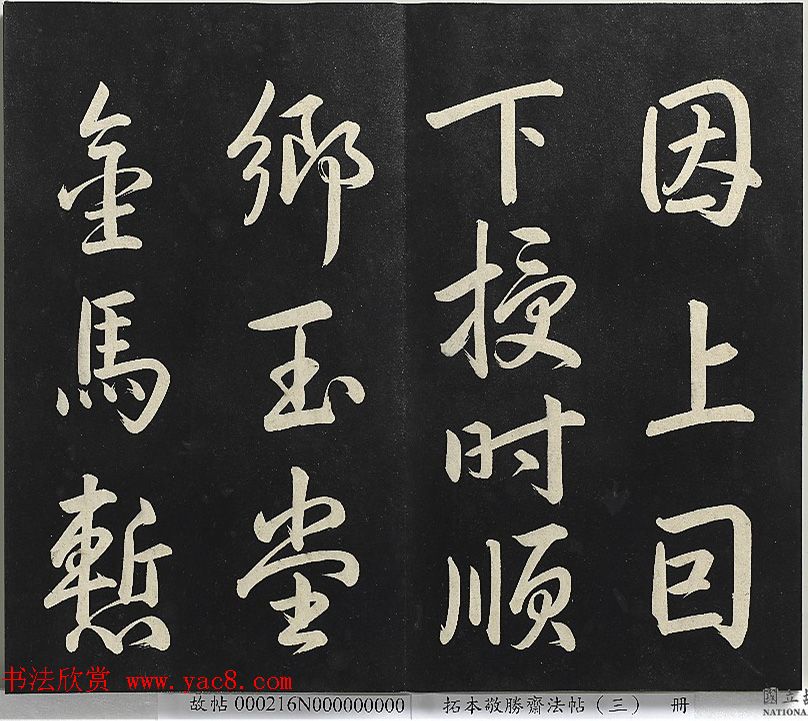 因上回
下授时順
鄉玉堂
金馬慙
书法欣赏 www.yac8.com
故帖 000216N000000000
拓本敬勝齋法帖（三） 册
NATIONAL